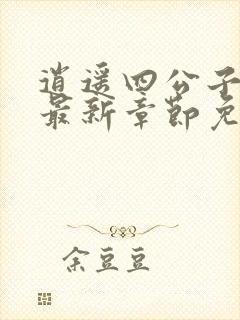 逍遥四公子
最新章节免
余豆豆